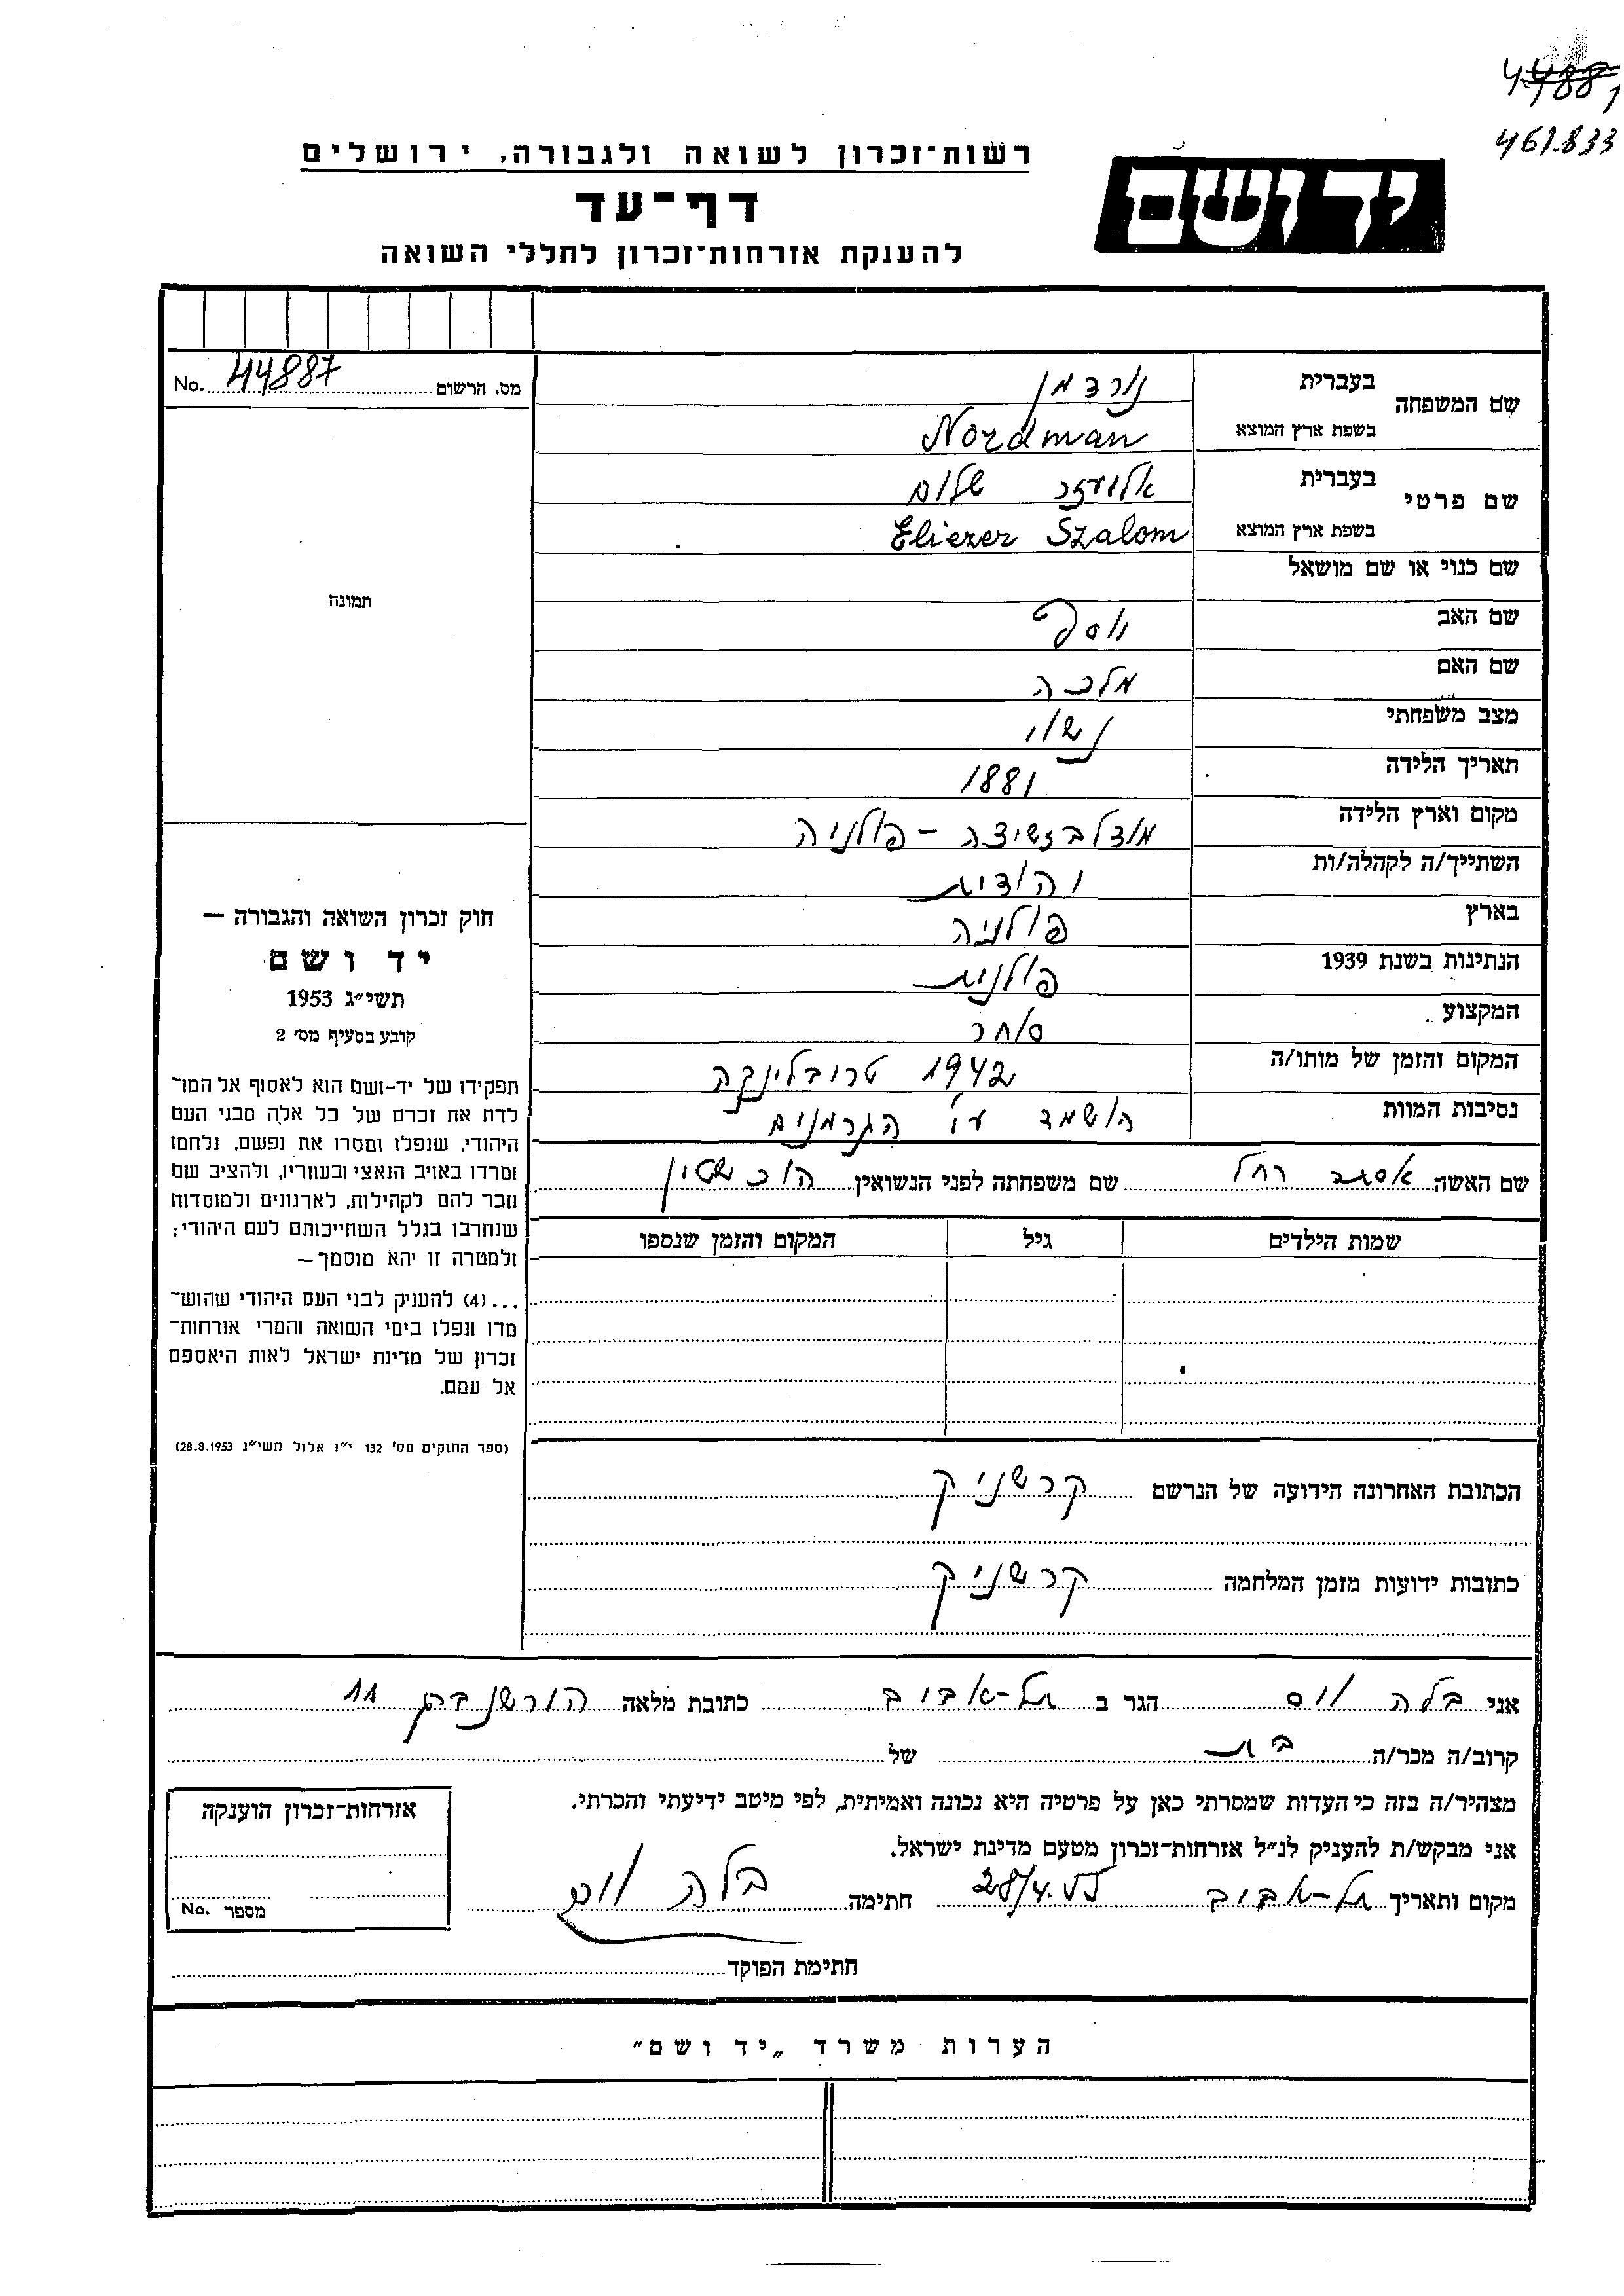 44887
461.833
רשות־זכרון לשואה ולגבורה, ירושלים
יד ושם
דף־עד
להענקת אזרחות־זכרון לחללי השואה
מס. הרשום 44887 No.
שם המשפחה בעברית נורדמן
בשפת ארץ המוצא Nordman
שם פרטי בעברית אליעזר שלום
בשפת ארץ המוצא Eliezer Szalom
שם כנוי או שם מושאל
שם האב יוסף
שם האם מלכה
מצב משפחתי נשוי
תאריך הלידה 1881
מקום וארץ הלידה מודלבז׳יצה – פולניה
השתייך/ה לקהלה/ות יהודית
בארץ פולניה
הנתינות בשנת 1939 פולנית
המקצוע סוחר
המקום והזמן של מותו/ה 1942 טרובלינקה
נסיבות המוות הושמד ע״י הגרמנים
שם האשה אסתר רחל שם משפחתה לפני הנשואין הוכשטין
שמות הילדים גיל המקום והזמן שנספו
הכתובת האחרונה הידועה של הנרשם קרשניק
כתובות ידועות מזמן המלחמה קרשניק
תמונה
חוק זכרון השואה והגבורה —
יד ושם
תשי״ג 1953
קובע בסעיף מס׳ 2
תפקידו של יד-ושם הוא לאסוף אל המו־
לדת את זכרם של כל אלה מבני העם
היהודי, שנפלו ומסרו את נפשם, נלחמו
ומרדו באויב הנאצי ובעוזריו, ולהציב שם
וזכר להם לקהילות, לארגונים ולמוסדות
שנחרבו בגלל השתייכותם לעם היהודי;
ולמטרה זו יהא מוסמך —
...(4) להעניק לבני העם היהודי שהוש־
מדו ונפלו בימי השואה והמרי אזרחות־
זכרון של מדינת ישראל לאות היאספם
אל עמם.
(ספר החוקים מס׳ 132 י״ז אלול תשי״ג 28.8.1953)
אני בלה וייס הגר ב תל-אביב כתובת מלאה 11
קרוב/ה מכר/ה בת של
מצהיר/ה בזה כי העדות שמסרתי כאן על פרטיה היא נכונה ואמיתית, לפי מיטב ידיעתי והכרתי.
אני מבקש/ת להעניק לנ״ל אזרחות־זכרון מטעם מדינת ישראל.
מקום ותאריך תל-אביב 28/4.55 חתימה בלה וייס
חתימת הפוקד
אזרחות־זכרון הוענקה
מספר No.
הערות משרד „יד ושם"